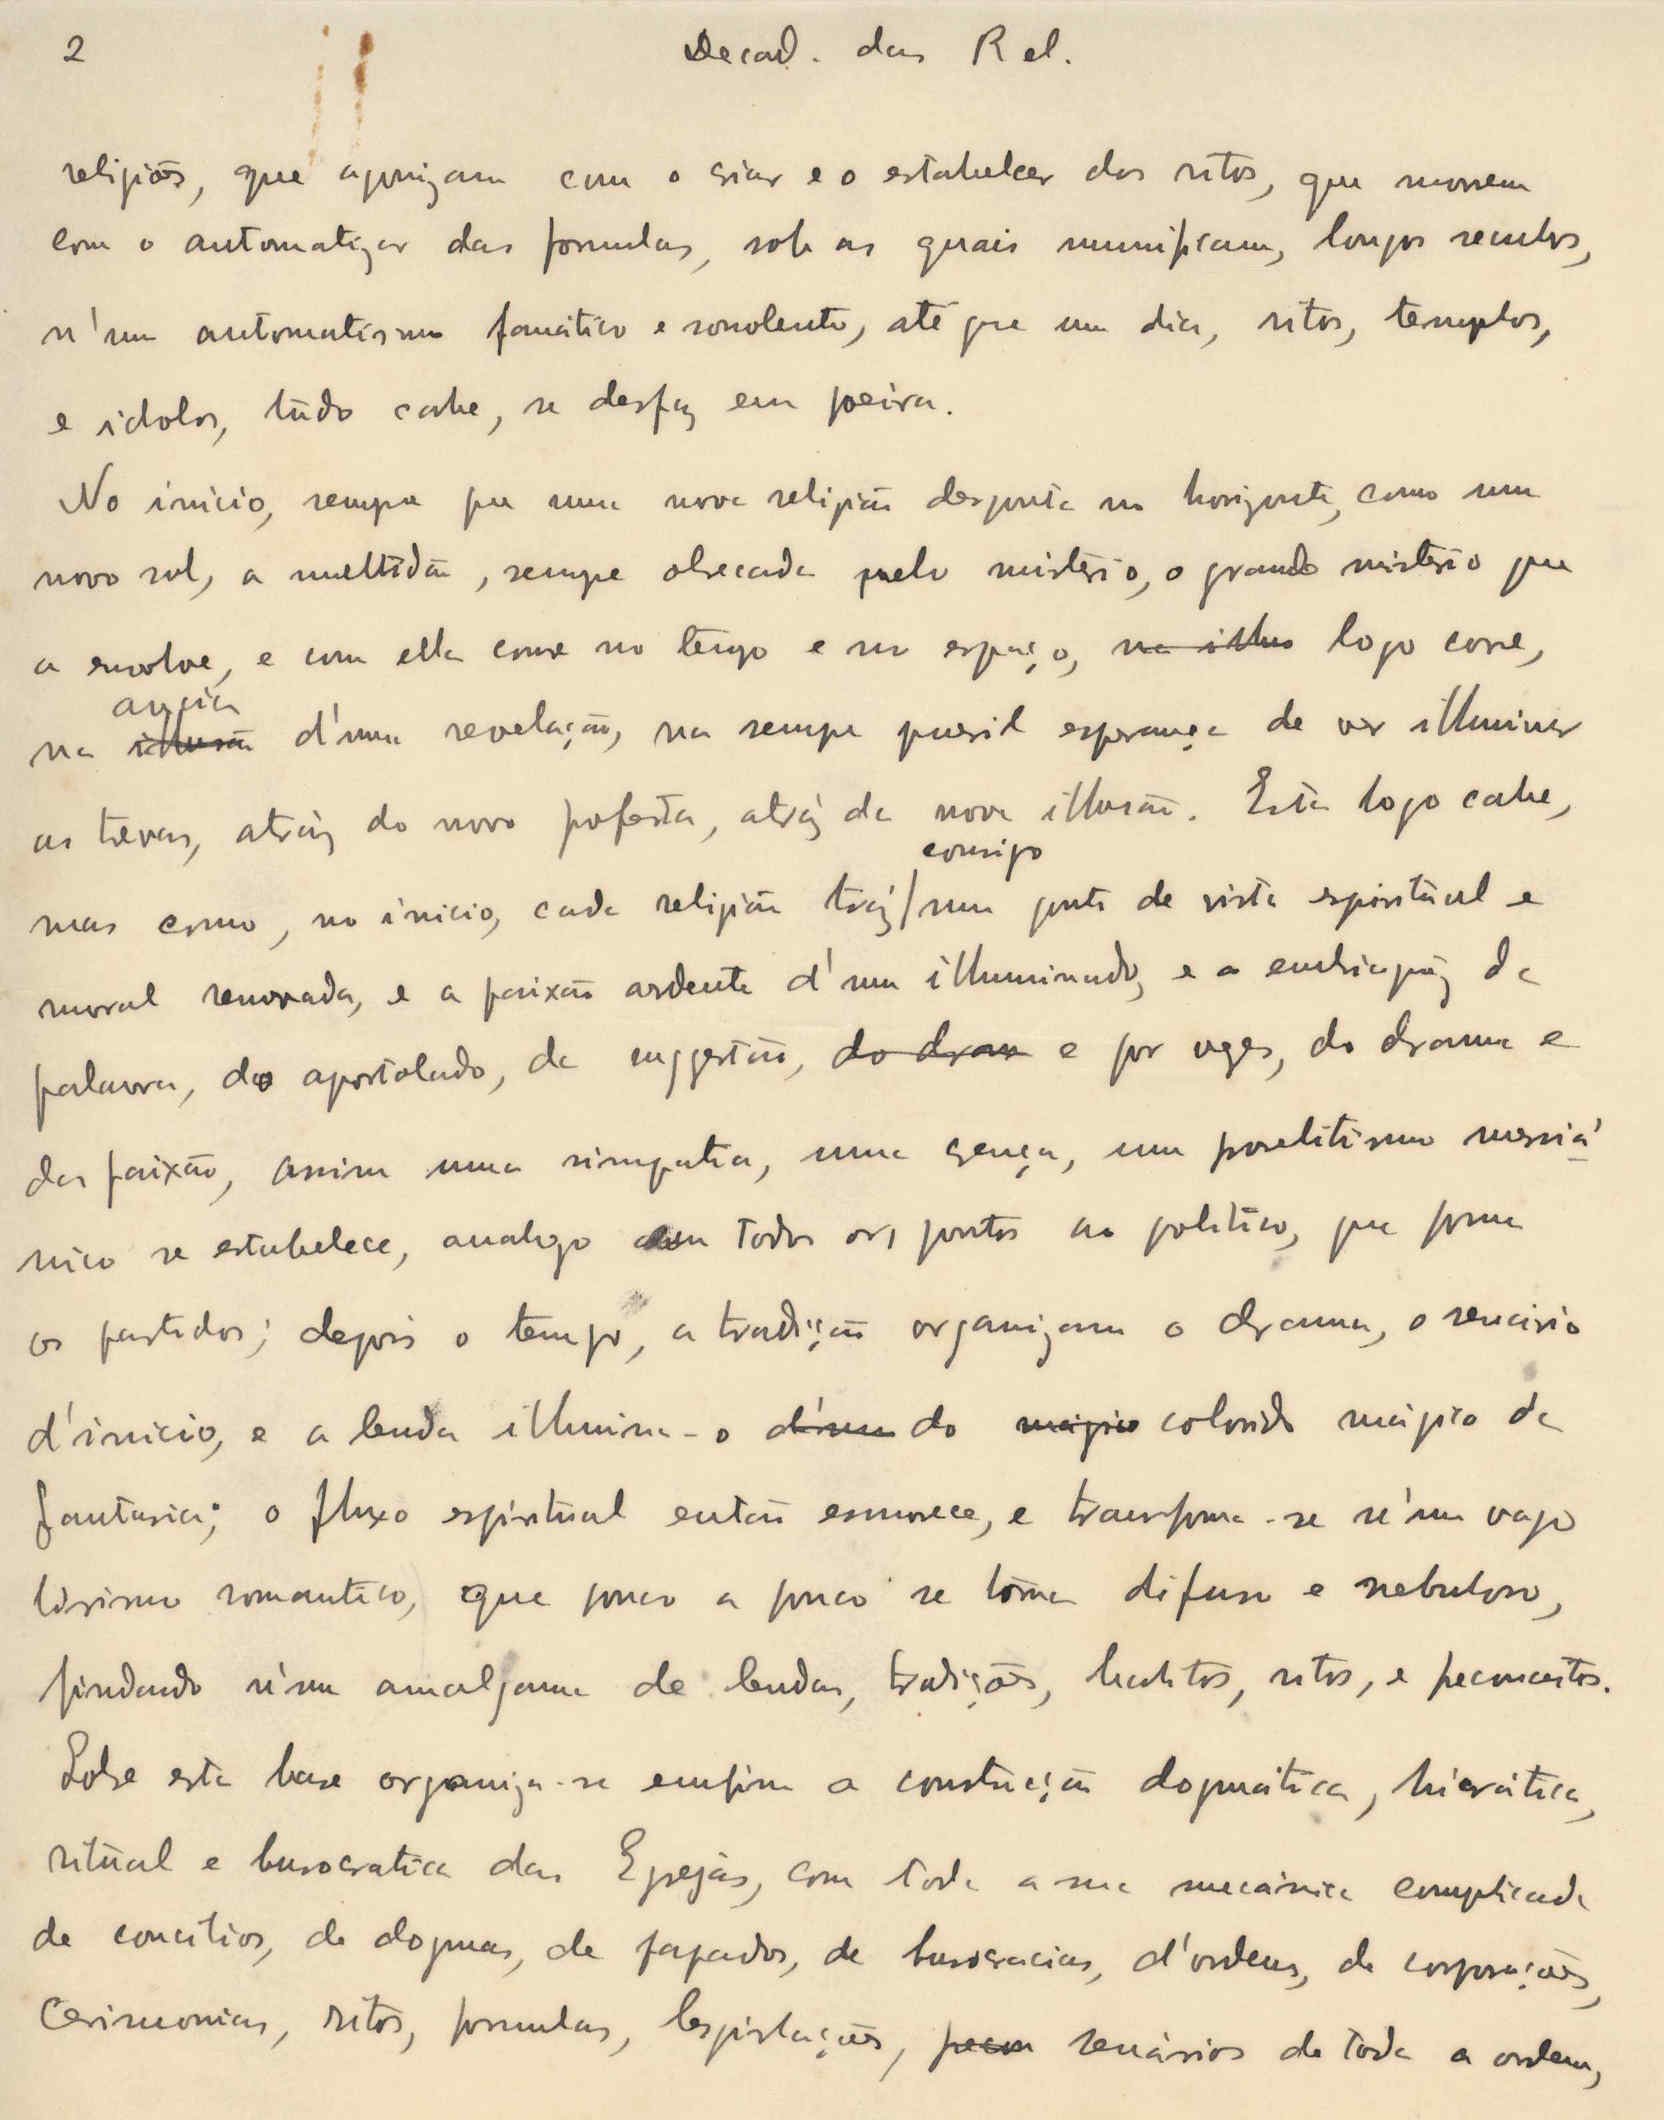 2 Decad. das Rel.
religiões, que agonizam com o criar e o estabelecer dos ritos, que morrem
com o automatizar das formulas, sob as quais mumificam, longos seculos,
n'um automatismo fanático e sonolento, até que um dia, ritos, templos,
e idolos, tudo cahe, se desfaz em poeira.
No inicio, sempre que uma nova religião desponta no horizonte, como um
novo sol, a multidão, sempre obsecada pelo mistério, o grande mistério que
a envolve, e com ella corre no tempo e no espaço, na illus logo corre,
ancia
na illusão d'uma revelação, na sempre pueril esperança de ver illuminar
as trevas, atráz do novo profeta, atráz da nova illusão. Esta logo cahe,
consigo
mas como, no inicio, cada religião tráz/um ponto de vista espiritual e
moral renovada, e a paixão ardente d'um illuminado, e a embriaguêz da
palavra, do apostolado, da suggestão, do dram e por vezes, do drama e
da paixão, assim uma simpatia, uma crença, um proselitismo messiâ
nico se estabelece, analogo em todos os pontos ao politico, que forma
os partidos; depois o tempo, a tradição organizam o drama, o scenario
d'inicio, e a lenda illumina-o d'um do mágico colorido mágico da
fantasia; o fluxo espiritual então esmorece, e transforma-se n'um vago
lirismo romantico, que pouco a pouco se torna difuso e nebuloso,
findando n'um amalgama de lendas, tradições, habitos, ritos, e preconceitos.
Sobre esta base organiza-se emfim a construção dogmática, hierática,
ritual e burocratica das Egrejas, com toda a sua mecánica complicada
de concilios, de dogmas, de papados, de burocracias, d'ordens, de corporações,
cerimonias, ritos, formulas, legislações, scenários de toda a ordem,